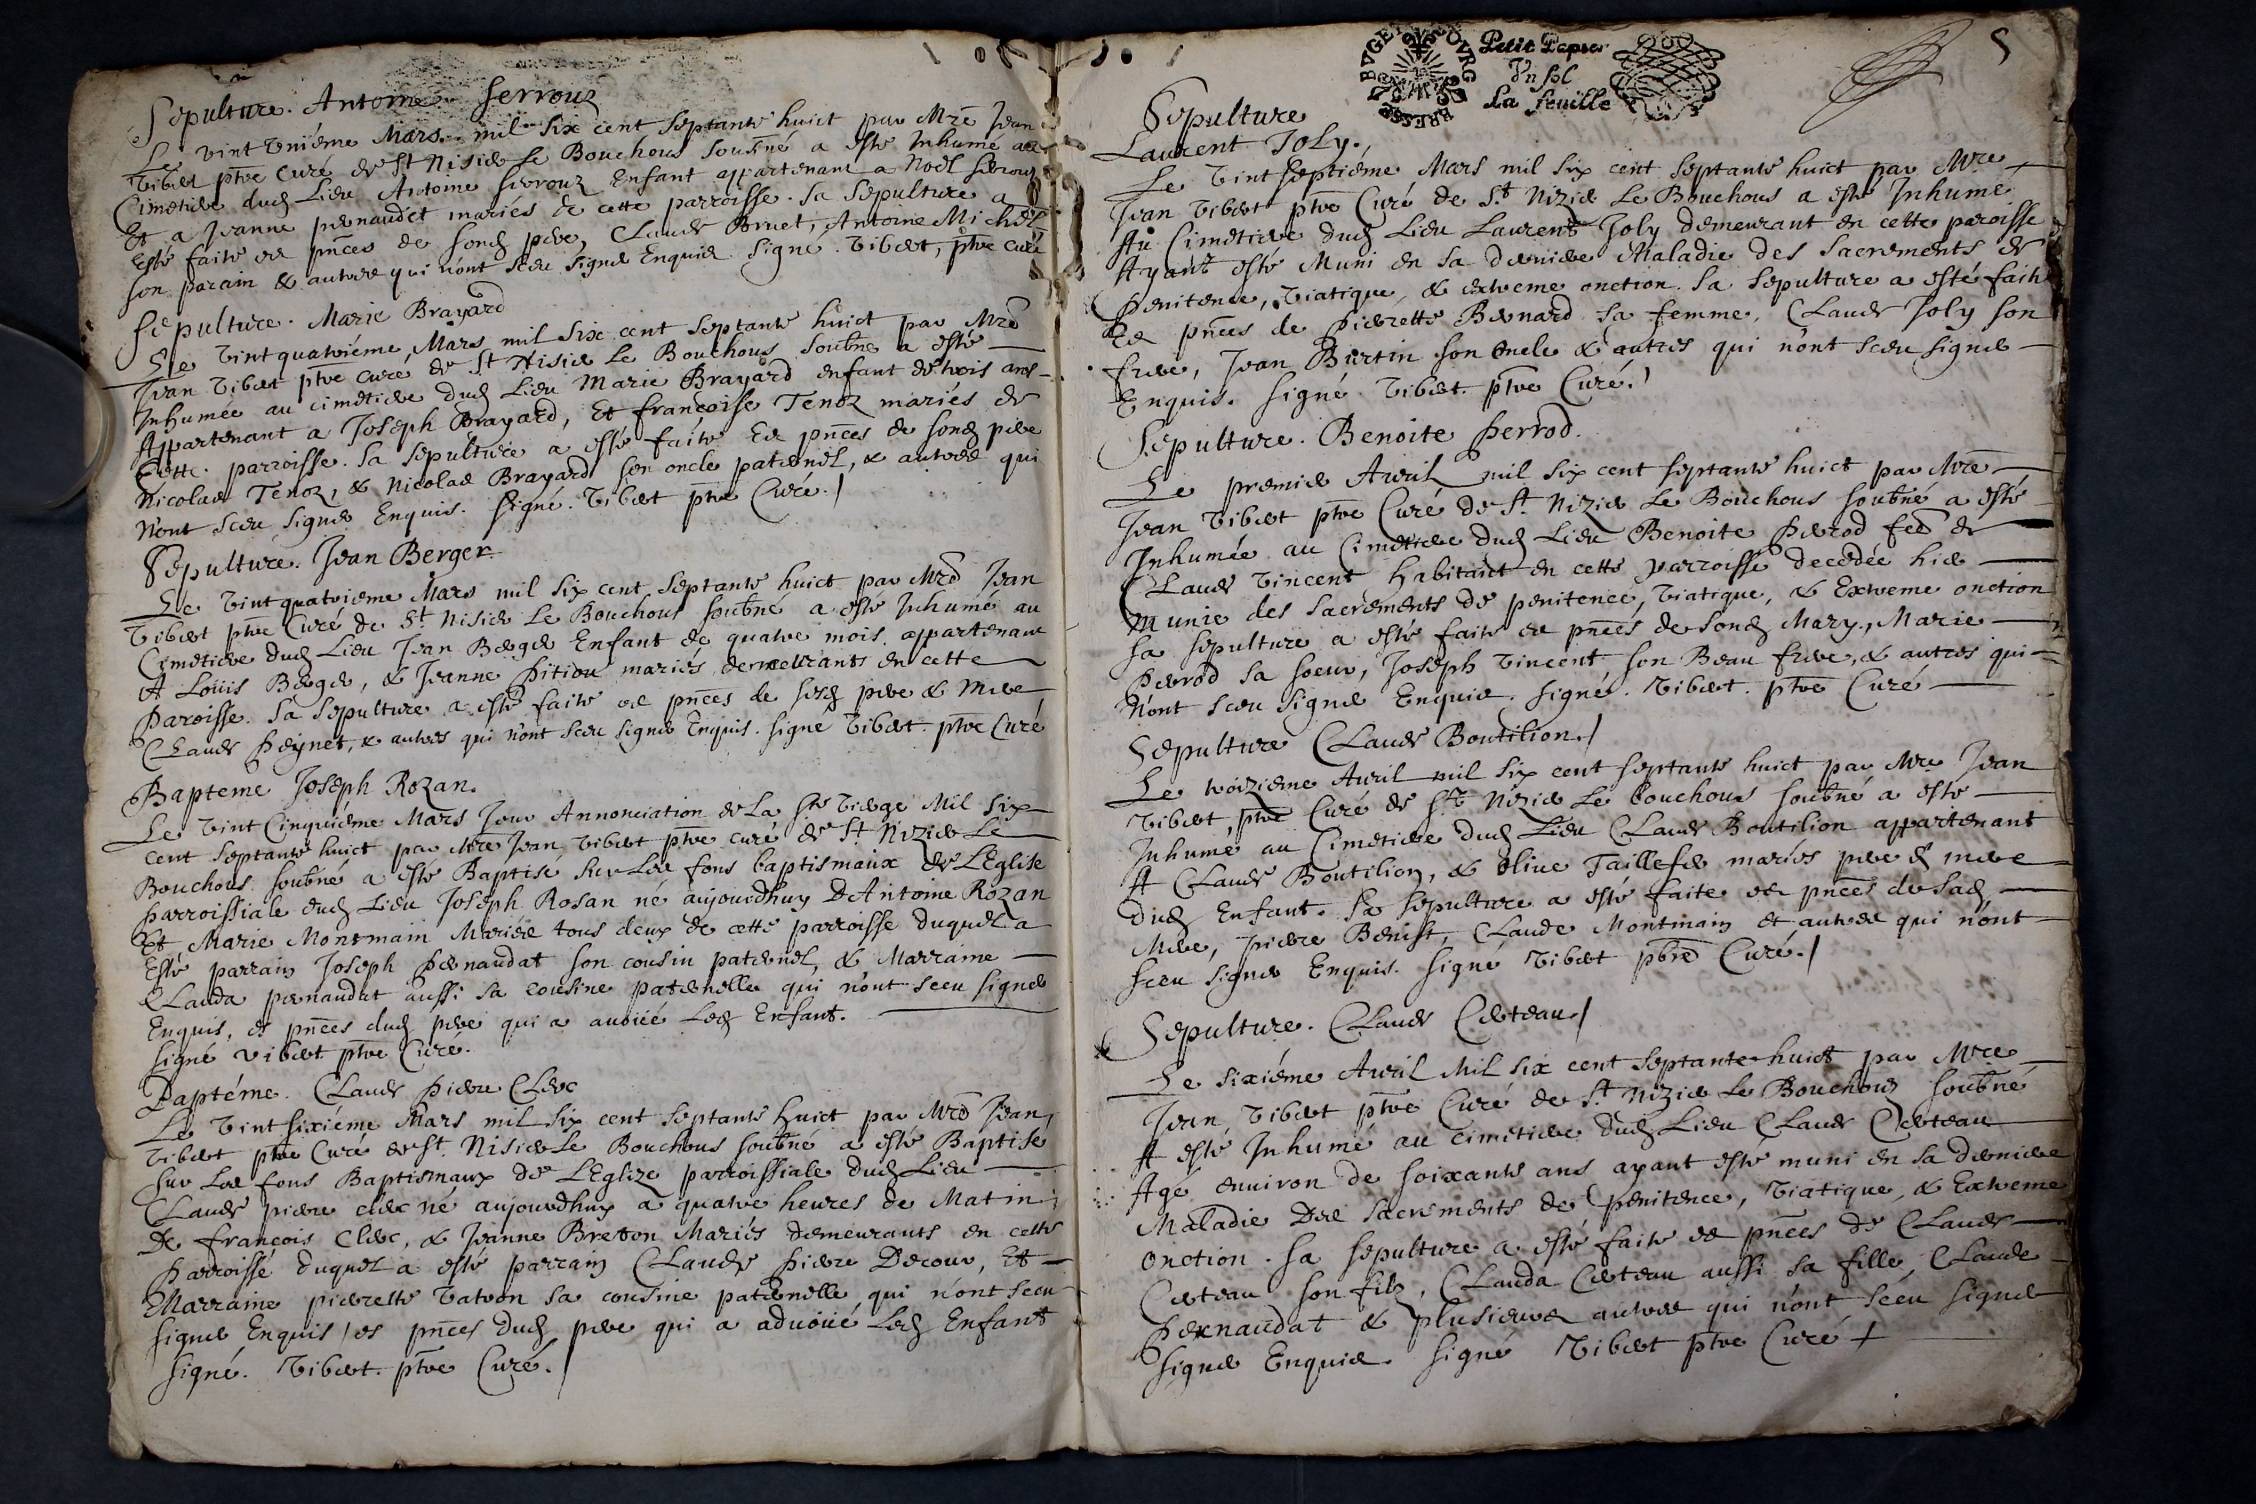 Sepulture. Antoine Ferrouz
Le vint uniéme Mars mil six cent septante huict par Mre Jean
Vibert ptre Curé de St Nisier Le Bouchous soubné a esté Inhumé au
Cimetiere dud Lieu Antoine ferrouz Enfant appartenant a Noël ferrouz
Et a Jeanne pernaudet mariés de cette parroisse. Sa Sepulture a
Esté faite es pnces de sond pere, Claude Bruet, Antoine Michel
son parain & autres qui n'ont sceu signer Enquis signé. Vibert, ptre curé
Sepulture. Marie Brayard
Le Vint quatriéme, Mars mil six cent septante huict par Mre
Jean Vibert ptre curé de St Nisier Le Bouchous soubné a esté
Inhumée au cimetiere dud Lieu Marie Brayard enfant de trois ans
Appartenant a Joseph Brayard, Et françoise Tenoz mariés de
Cette parroisse. Sa sepulture a esté faite Es pnces de sond pere
Nicolas Tenoz, & Nicolas Brayard son oncle paternel, & autres qui
N'ont sceu signer Enquis. Signé. Vibert ptre Curé./
Sepulture. Jean Berger
Le Vint quatrieme Mars mil six cent septante huict par Mre Jean
Vibert ptre Curé de St Nisier Le Bouchous soubné a esté Inhumé au
Cimetiere dud Lieu Jean Berger Enfant de quatre mois appartenant
A Loüis Berger, & Jeanne Pition mariés demeurants en cette
Paroisse. Sa sepulture a esté faite es pnces de sesd pere & mere
Claude Peynet, & autres qui n'ont sceu signer Enquis. signé Vibert ptre Curé
Bapteme Joseph Rozan.
Le Vint Cinquiéme Mars Jour Annonciation de La Ste Vierge Mil Six
cent septante huict par Mre Jean Vibert ptre curé de St. Nizier Le
Bouchous soubné a esté Baptisé sur Les fons baptismaux de L'Eglise
parroissiale dud Lieu Joseph Rosan né aujourdhuy D'Antoine Rozan
Et Marie Montmain Mariés tous deux de cette parroisse duquel a
Esté parrain Joseph Pernaudat son cousin paternel, & Marraine
Clauda pernaudat aussi sa cousine paternelle qui n'ont sceu signer
Enquis, es pnces dud pere qui a avoüé Led Enfant.
signé Vibert ptre Curé.
Baptéme. Claude Pierre Clerc
Le Vint sixiéme Mars mil six cent septante huict par Mre Jean
Vibert ptre Curé de St. Nisier Le Bouchous soubné a esté Baptisé
sur Les fons Baptismaux de L'Eglize parroissiale dud Lieu
Claude pierre clerc né aujourdhuy a quatre heures de Matin
De françois Clerc, & Jeanne Breton Mariés demeurants en cette
Parroisse duquel a esté parrain Claude Pierre Decour, Et
Marraine pierrette Vatron sa cousine paternelle qui n'ont sceu
signer Enquis / es pnces dud pere qui a advoüé Led Enfant
signé. Vibert. ptre Curé./
BRESSE BVGEY BOVRG
Petit Papier
Vn sol
La feuille
5
Sepulture
Laurent Joly.
Le Vint septiéme Mars mil six cent septante huict par Mre
Jean Vibert ptre Curé de St. Nizier Le Bouchous a esté Inhumé
Au Cimetiere dud Lieu Laurent Joly demeurant en cette paroisse
Ayant esté Muni en sa derniere Maladie des Sacrements de
Penitence, Viatique, & extreme onction. Sa sepulture a esté faite
Es pnces de Pierrette Bernard sa femme, Claude Joly son
frere, Jean Burtin son Oncle & autres qui n'ont sceu signer
Enquis. Signé Vibert. ptre Curé./
Sepulture. Benoite Perrod.
Le premier Avril mil six cent septante huict par Mre
Jean Vibert ptre Curé de St. Nizier Le Bouchous soubné a esté
Inhumée au Cimetiere dud Lieu Benoite Perrod fee de
Claude Vincent Habitant en cette parroisse decedée hier
Munie des Sacrements de penitence, Viatique, & Extreme onction
sa sepulture a esté faite es pnces de sond Mary, Marie
Perrod sa soeur, Joseph Vincent son Beau frere, & autres qui
N'ont sceu signer Enquis. signé. Vibert. ptre Curé
Sepulture Claude Boutilion./
Le troizieme Avril mil six cent septante huict par Mre Jean
Vibert, ptre Curé de St. Nizier Le Bouchous soubné a esté
Inhumé au Cimetiere dud Lieu Claude Boutilion appartenant
A Claude Boutilion, & Olive Taillefer mariés pere & mere
Dud Enfant. Sa sepulture a esté faite es pnces de sad
Mere, pierre Benist, Claude Montmain et autres qui n'ont
sceu signer Enquis. signé Vibert pbre Curé./
Sepulture. Claude Certeau/
Le sixiéme Avril Mil six cent septante huict par Mre
Jean Vibert ptre Curé de St. Nizier Le Bouchouz soubné
A esté Inhumé au cimetiere dud Lieu Claude Certeau
Agé environ de soixante ans ayant esté muni en sa derniere
Maladie Des Sacrements de penitence, Viatique, & Extreme
Onction. Sa sepulture a esté faite es pnces de Claude
Certeau son filz, Clauda Certeau aussi sa fille, Claude
Pernaudat & plusieurs autres qui n'ont sceu signer
signer Enquis. signé Vibert ptre Curé